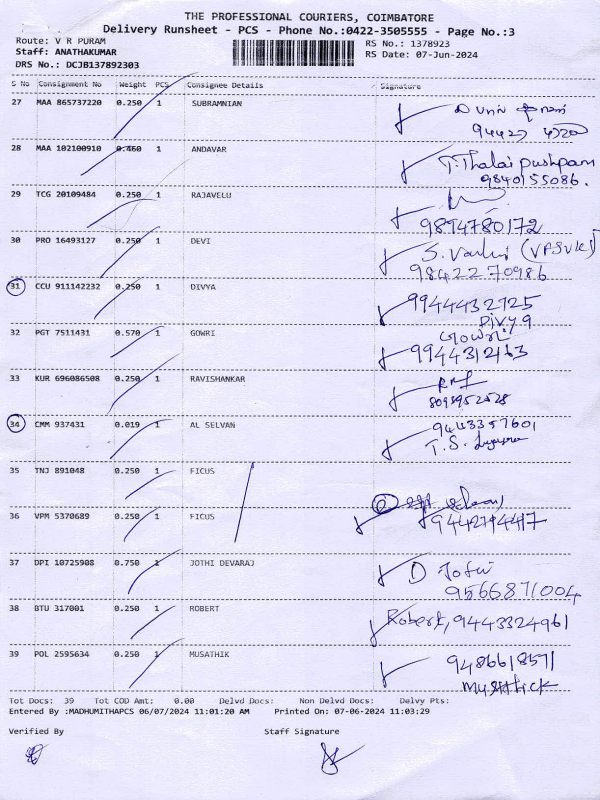 THE PROFESSIONAL COURIERS, COIMBATORE
Delivery Runsheet - PCS - Phone No.:0422-3505555 - Page No.:3
Route: V R PURAM
Staff: ANATHAKUMAR
DRS No.: DCJB137892303
RS No.: 1378923
RS Date: 07-Jun-2024
S No Consignment No Weight PCS Consignee Details Signature
27 MAA 865737220 0.250 1 SUBRAMNIAN
28 MAA 102100910 0.460 1 ANDAVAR T.Thalai pushpam
9840155086.
29 TCG 20109484 0.250 1 RAJAVELU
9894780172
30 PRO 16493127 0.250 1 DEVI
9842270986
31 CCU 911142232 0.250 1 DIVYA 9944432725
Divya
32 PGT 7511431 0.570 1 GOWRI Gowri
9944312163
33 KUR 696086508 0.250 1 RAVISHANKAR
34 CMM 937431 0.019 1 AL SELVAN 9443357601
T.S.
35 TNJ 891048 0.250 1 FICUS
36 VPM 5370689 0.250 1 FICUS
37 DPI 10725908 0.750 1 JOTHI DEVARAJ D Jothi
9566871004
38 BTU 317001 0.250 1 ROBERT Robert, 9443324961
39 POL 2595634 0.250 1 MUSATHIK 9486618571
Musthick
Tot Docs: 39 Tot COD Amt: 0.00 Delvd Docs: Non Delvd Docs: Delvy Pts:
Entered By :MADHUMITHAPCS 06/07/2024 11:01:20 AM Printed On: 07-06-2024 11:03:29
Verified By Staff Signature